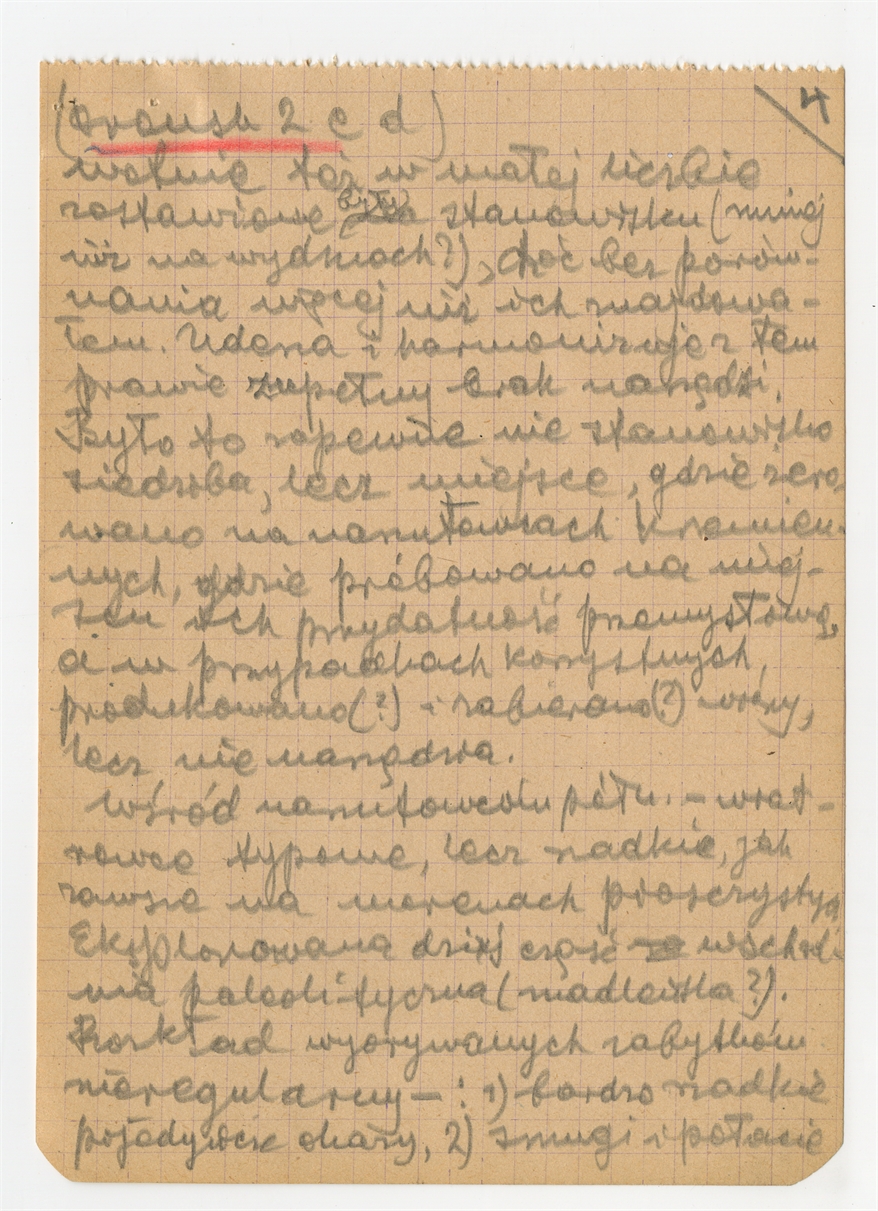 4
(Orońsk 2 c d)
widocznie też w małej liczbie
zostawione były na stanowisku (mniej
niż na wydmach?), choć bez porów-
nania więcej niż ich znajdowa-
łem. Uderza i harmonizuje z tem
prawie zupełny brak narzędzi.
Było to zapewne nie stanowisko
siedziba, lecz miejsce, gdzie żero-
wano na narzutowcach krzemien-
nych, gdzie próbowano na miej-
scu ich przydatność przemysłową,
a w przypadkach korzystnych,
produkowano(?) i zabierano(?) wióry,
lecz nie narzędzia.
Wśród narzutowców półn. –
typowe, lecz rzadkie, jak
zawsze na morenach piaszczystych
Eksplorowana dziś część wschod-
nia paleolityczna (nadleiska?).
Rozkład wyorywanych zabytków
nieregularny – : 1) bardzo rzadkie
pojedyńcze okazy, 2) smugi i połacie